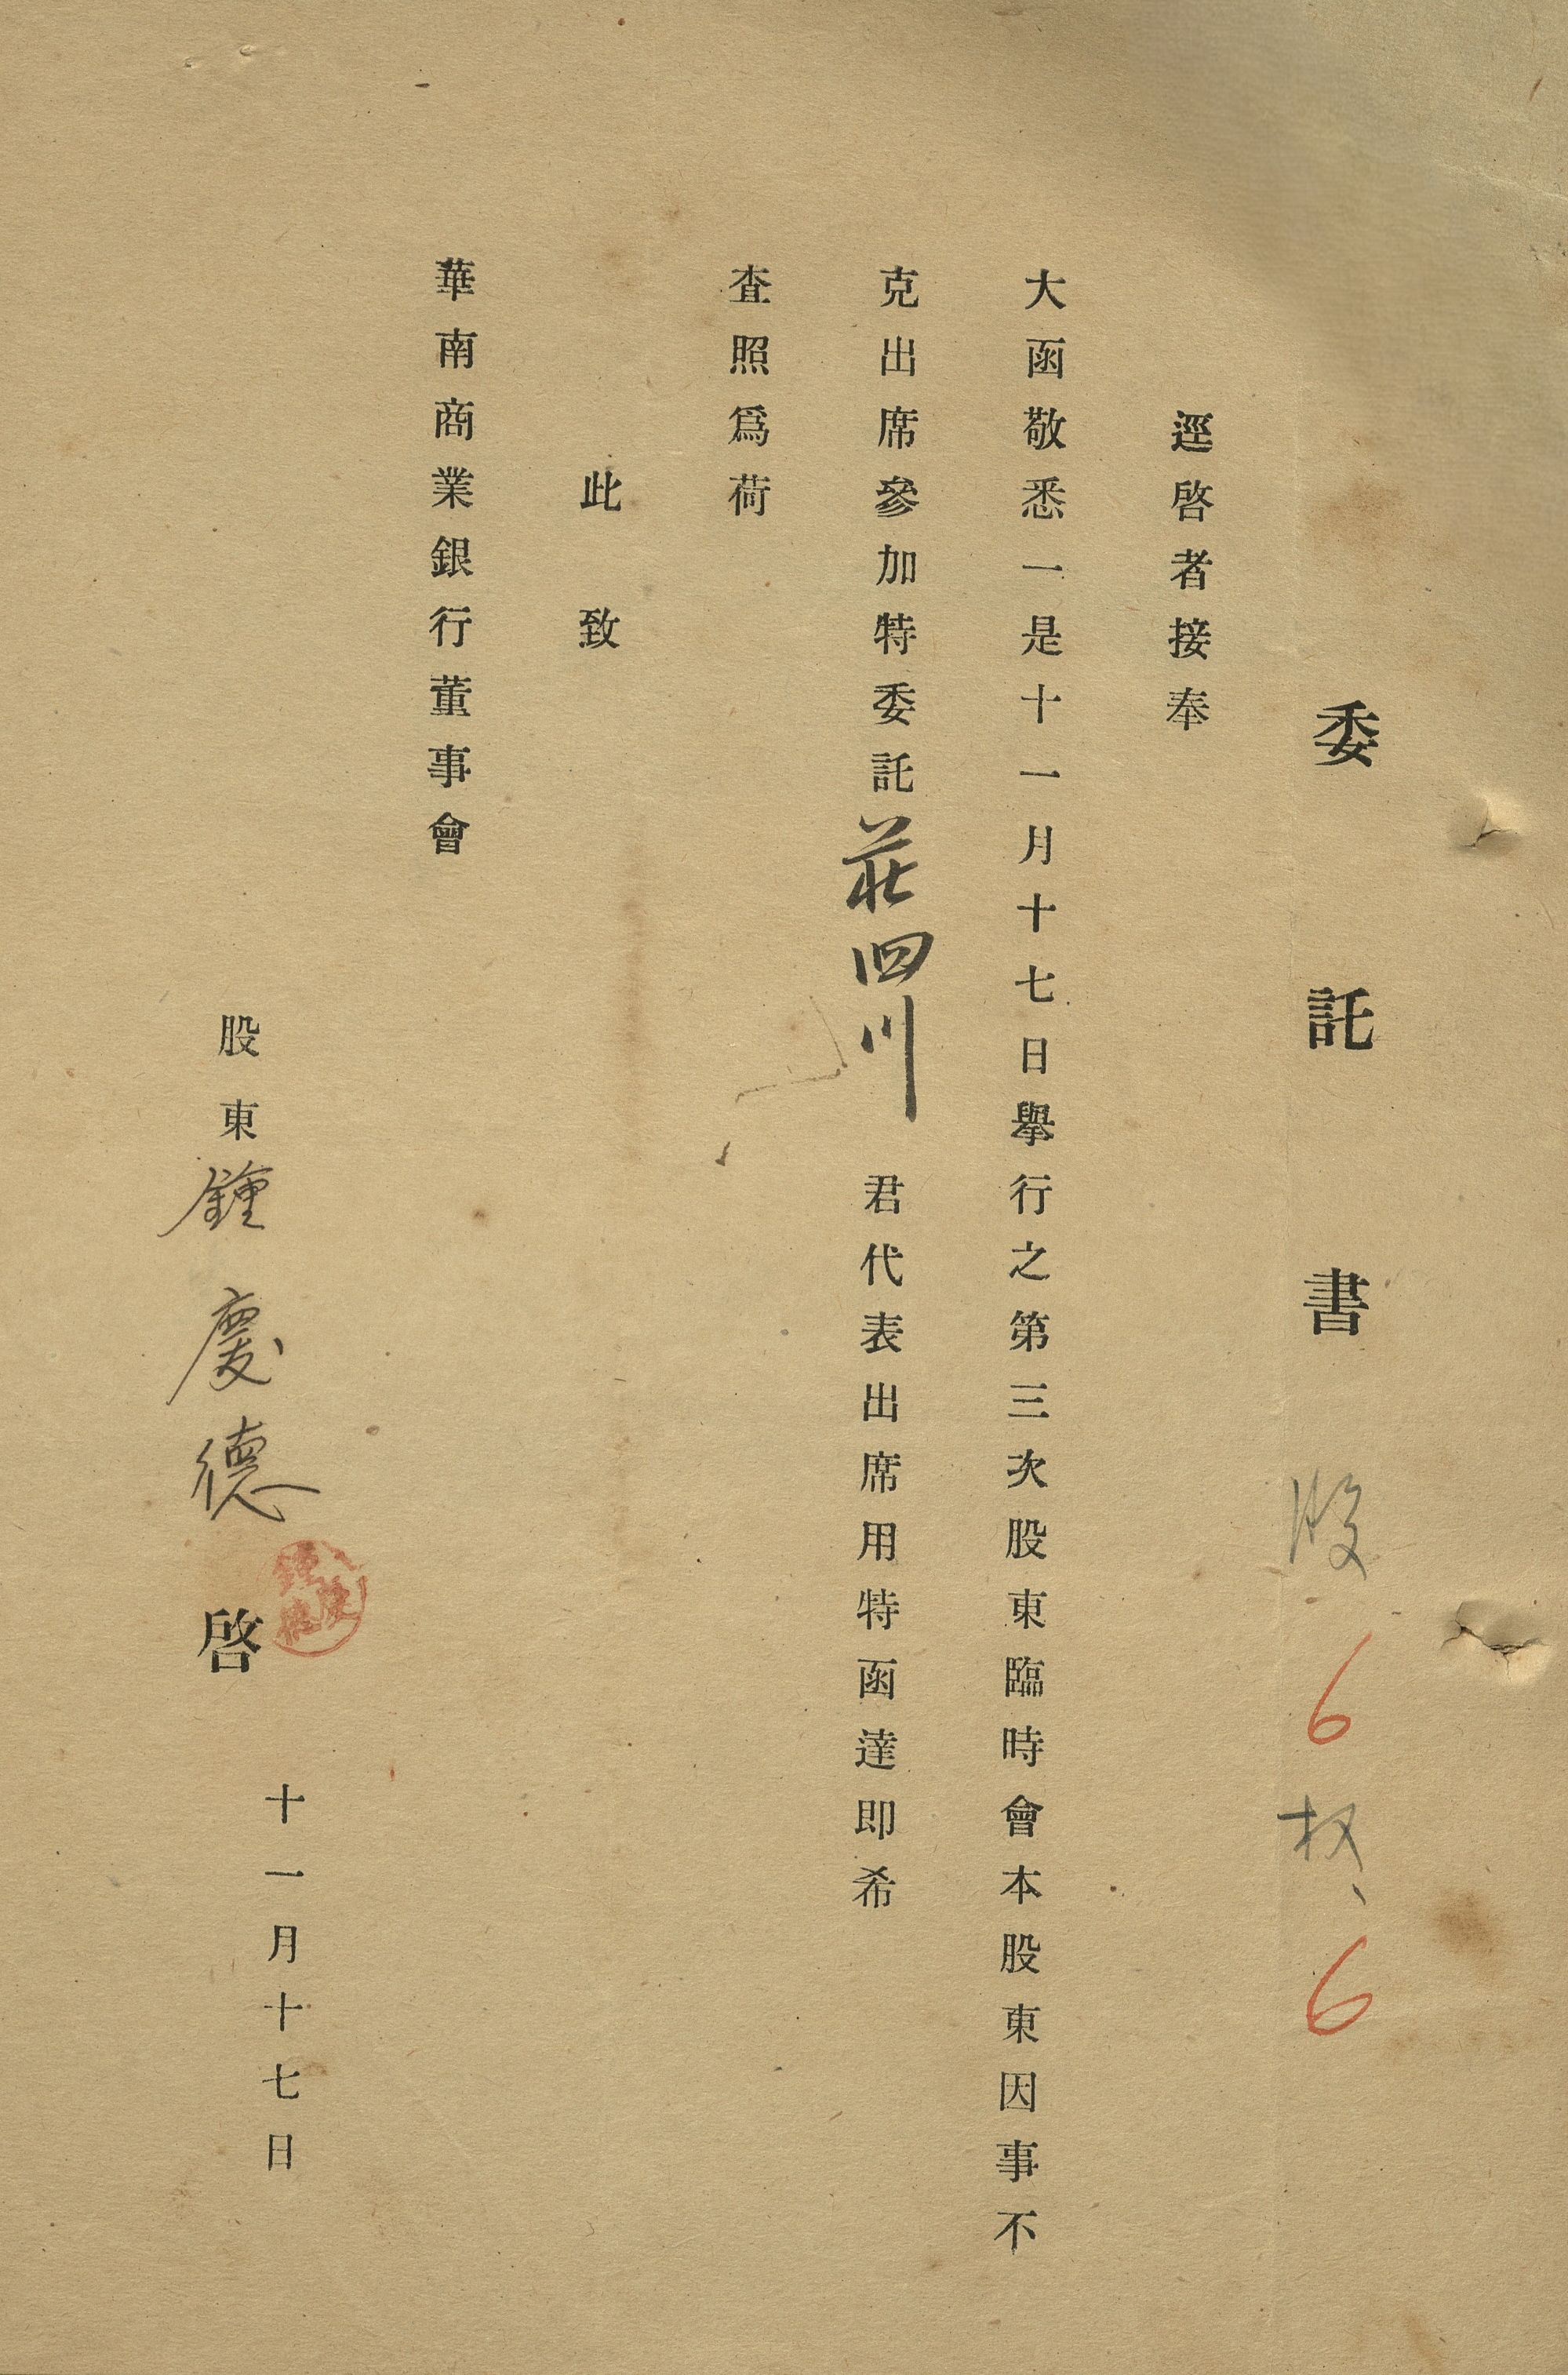 委託書 股 6 权、6
逕啓者接奉
大函敬悉一是十一月十七日舉行之第三次股東臨時會本股東因事不
克出席參加特委託莊四川君代表出席用特函達即希
查照爲荷
此致
華南商業銀行董事會
股東鍾慶德啓
鍾慶德
十一月十七日